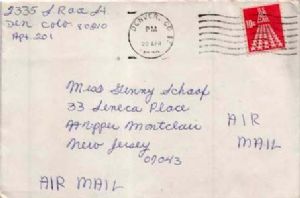 2335 S
Den Colo 80210
Apt. 201
DENVER, CO
PM
10c
Miss Genny Schoof
33 Seneca Place
Upper Montclair
New Jersey
07043
AIR
MAIL
AIR MAIL